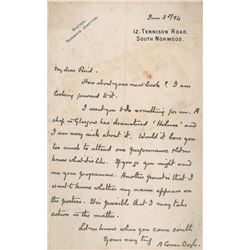 STATION,
NORWOOD JUNCTION.
June 3rd/94
12, TENNISON ROAD,
SOUTH NORWOOD.
My dear Reid -
How about your new book? I am
looking forward to it.
I want you to do something for me. A
chap in Glasgow has dramatised 'Holmes' and
I am very sick about it. Would it bore you
too much to attend one performance and let me
know what it is like. If you go you might send
me your programme. Another point is that I
want to know whether my name appears on the
posters. It is possible that I may take
action in the matter.
Let me know when you come south
Yours very truly
A Conan Doyle.